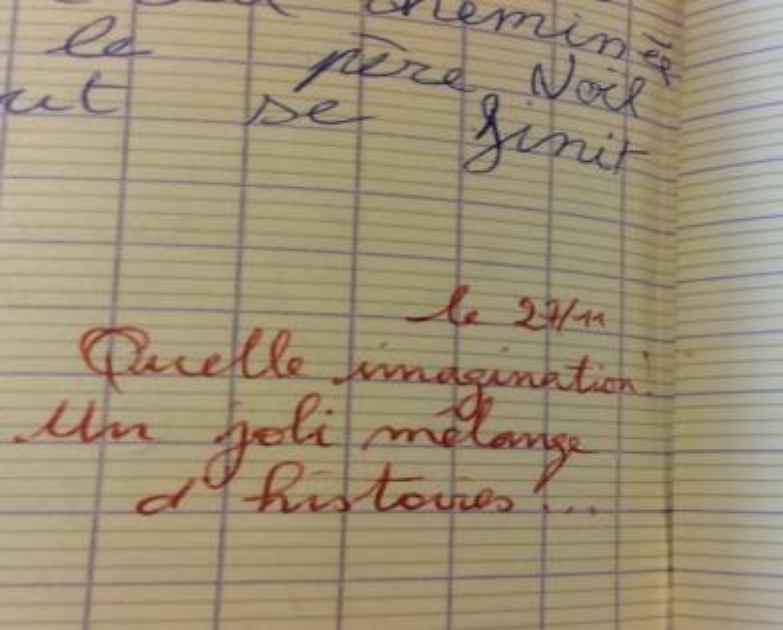 cheminée
le père Noël
ut se finit
le 27/11
Quelle imagination!
Un joli mélange
d'histoires!...